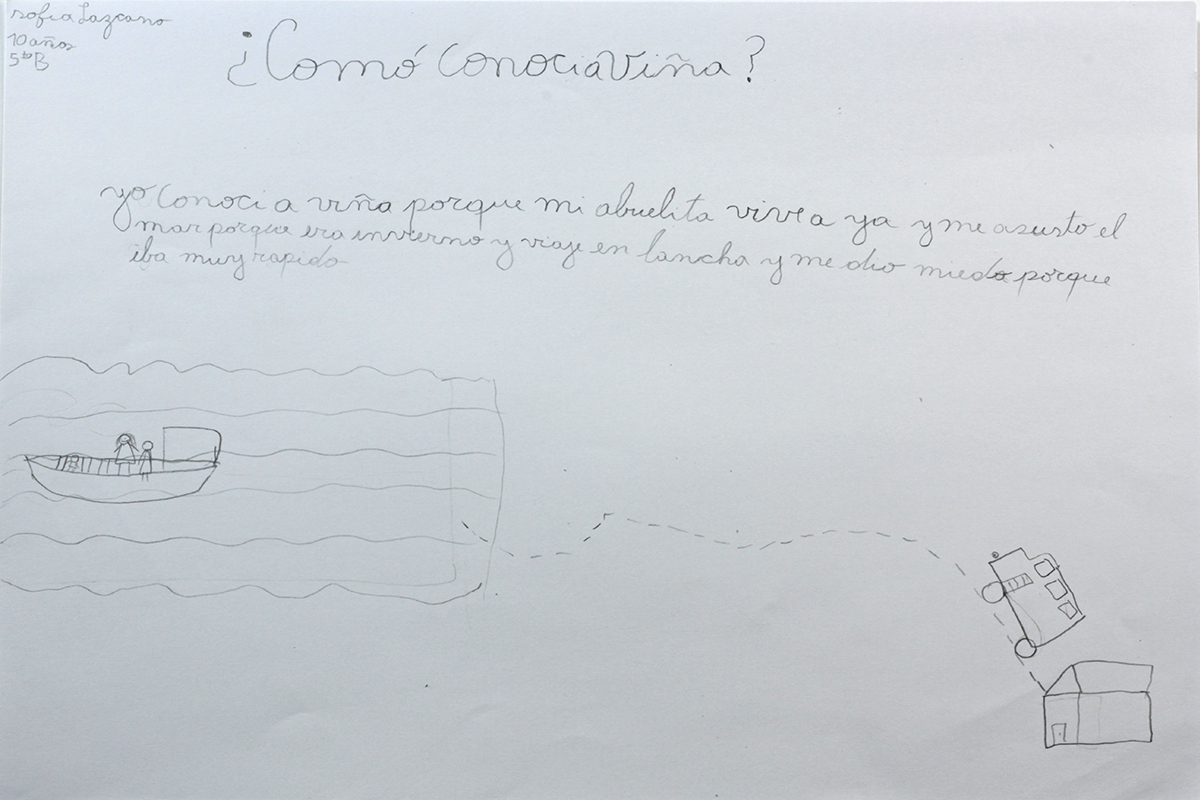 sofia Lazcano
10 años
5to B
¿Comó conocia Viña?
yo conoci a viña porque mi abuelita vive a ya y me asusto el
mar porque era invierno y viaje en lancha y me dio miedo porque
iba muy rapido